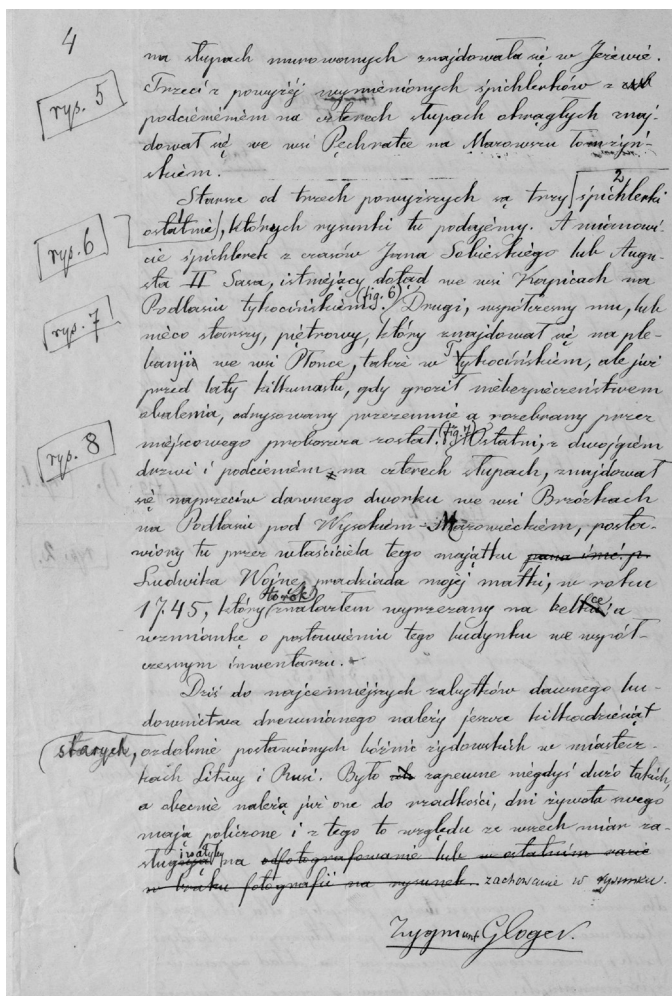 4
na słupach murowanych znajdowała się w Jeżewie.
rys. 5
Trzeci z powyżéj wymienionych śpichlerków z
podcieniéniem na czterech słupach okrągłych znaj-
dował się we wsi Pęchratce na Mazowszu łomżyń-
skiém.
Starsze od trzech powyższych są trzy śpichlerki 2
ostatnie, których rysunki tu podajemy. A mianowi-
rys. 6
cie śpichlerek z czasów Jana Sobieskiego lub Augu-
sta II Sasa, istniejący dotąd we wsi Kapicach na
Podlasiu tykocińskiém (fig. 6). Drugi, współczesny mu, lub
rys. 7
nieco starszy, piętrowy, który znajdował się na ple-
banji we wsi Płonce, także w Tykocińskiém, ale już
przed laty kilkunastu, gdy groził niebezpieczeństwem
obalenia, odrysowany przezemnie a rozebrany przez
miejscowego proboszcza został. (fig 7) Ostatni, z dwojgiem
rys. 8
drzwi i podcieniem na czterech słupach, znajdował
się naprzeciw dawnego dworku we wsi Brzózkach
na Podlasiu pod Wysokiém-Mazowieckiém, posta-
wiony tu przez właściciela tego majątku pana imć. p.
Ludwika Wojnę, pradziada mojej matki, w roku
1745, który to rok znalazłem wyrzezany na belce i a
wzmiankę o postawieniu tego budynku we współ-
czesnym inwentarzu.
Dziś do najcenniejszych zabytków dawnego bu-
downictwa drewnianego należy jeszcze kilkadziesiąt
starych, ozdobnie postawionych bóżnic żydowskich w miastecz-
kach Litwy i Rusi. Było ich zapewne niegdyś dużo takich,
a obecnie należą już one do rzadkości, dni żywota swego
mają policzone i z tego to względu ze wszech miar za-
sługiwałyby na odfotografowanie lub w ostatnim razie
w braku fotografii na rysunek. zachowanie w rysunku.
Zygmunt Gloger.